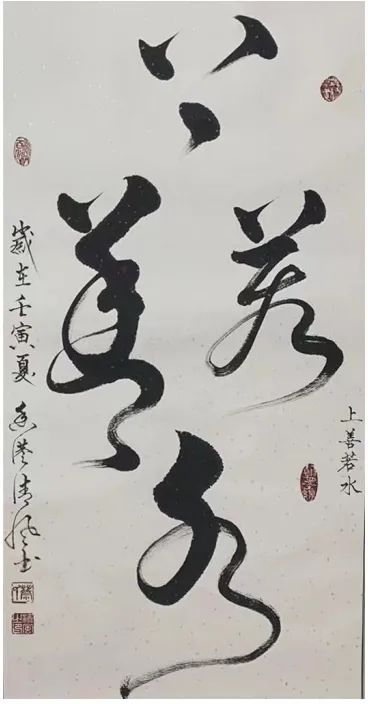 上善若水
上善若水
歲在壬寅夏 香港清風書